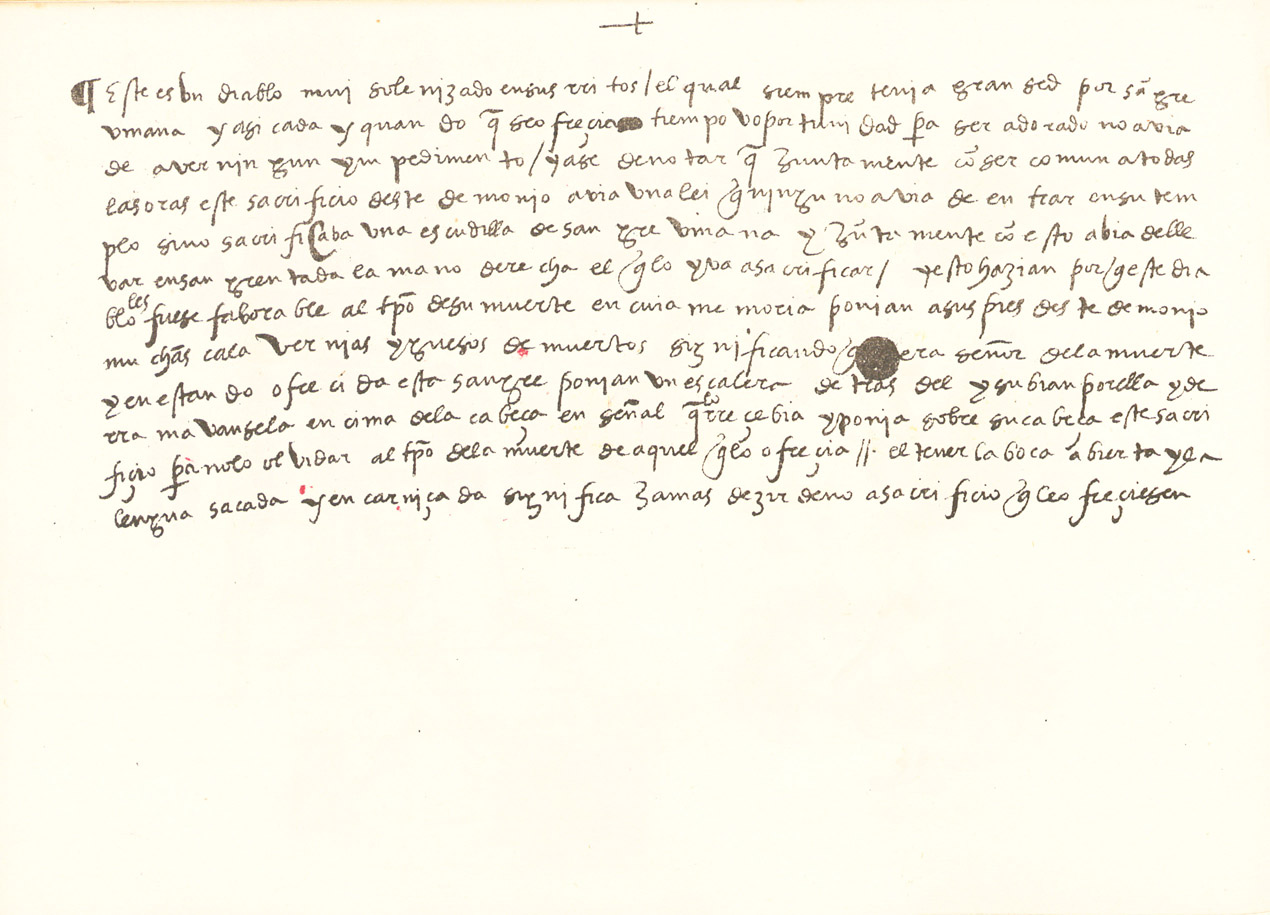 ¶ Este es un diablo mui solenizado en sus rritos / el qual siempre tenia gran sed por sāgre
vmana y asi cada y quando q̄ se ofreçia tiempo v oportunidad pa ser adorado no avia
de aver ningun ynpedimento / y ase de notar q̄ juntamente cō ser comun a todas
las oras este sacrificio deste demonio avia vna lei q̄ ninguno avia de entrar en su tem
plo sino sacrificaba vna escudilla de sangre vmana y jūtamente cō esto abia de lle
var ensangrentada la mano derecha el q̄ lo yva a sacrificar / y esto hazian por q̄ este dia
blo les fuese faborable al tpō de su muerte en cuia memoria ponian a sus pies deste demonio
muchās calavernias y guesos de muertos significando q̄ era señor de la muerte
y en estando ofrecida esta sangre ponian vn escalera detras del y subian por ella y de
rramavansela encima de la cabeça en señal q̄ lo rreçebia y ponia sobre su cabeça este sacri
fiçio pa no lo olvidar al tpō de la muerte de aquel q̄ lo ofreçia //. el tener la boca abierta y la
lengua sacada y encarniçada significa jamas dezir de no a sacrificio q̄ le ofreçiesen